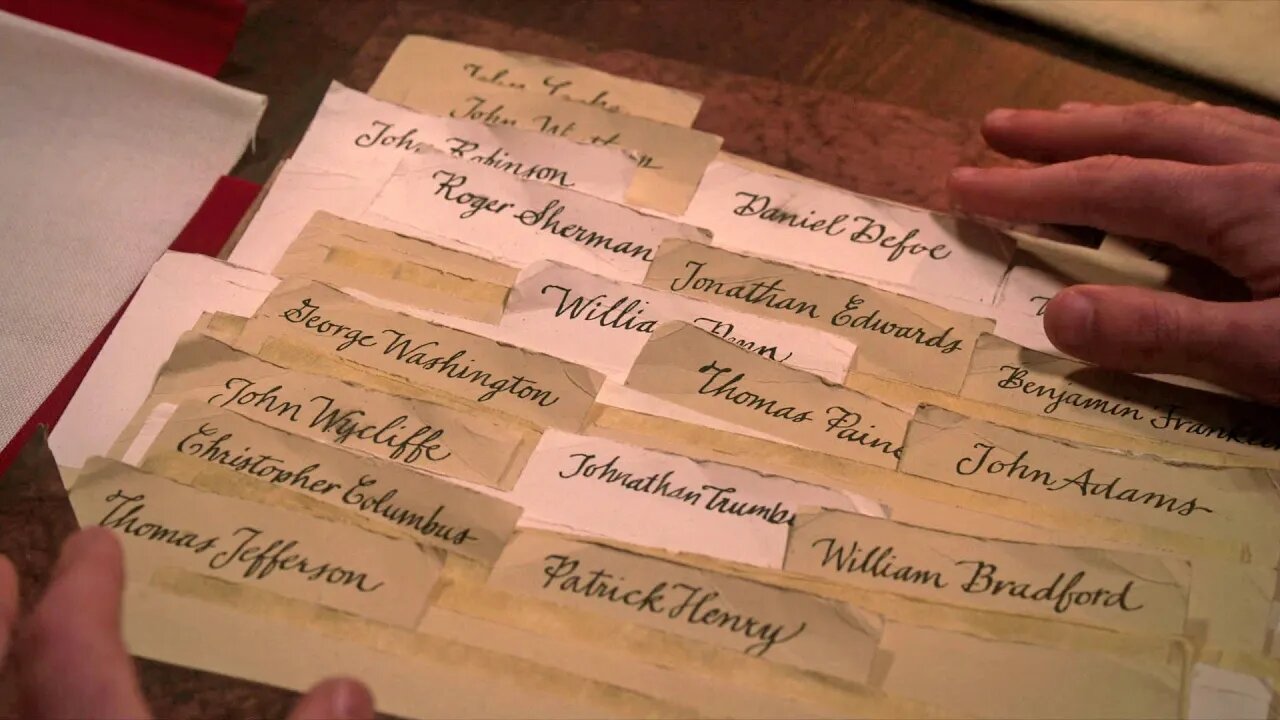 John
John
John Robinson
Roger Sherman
Daniel Defoe
Jonathan Edwards
William Penn
George Washington
Thomas Paine
Benjamin Frankli
John Wycliffe
John Adams
Christopher Columbus
Johnathan Trumbu
Thomas Jefferson
Patrick Henry
William Bradford